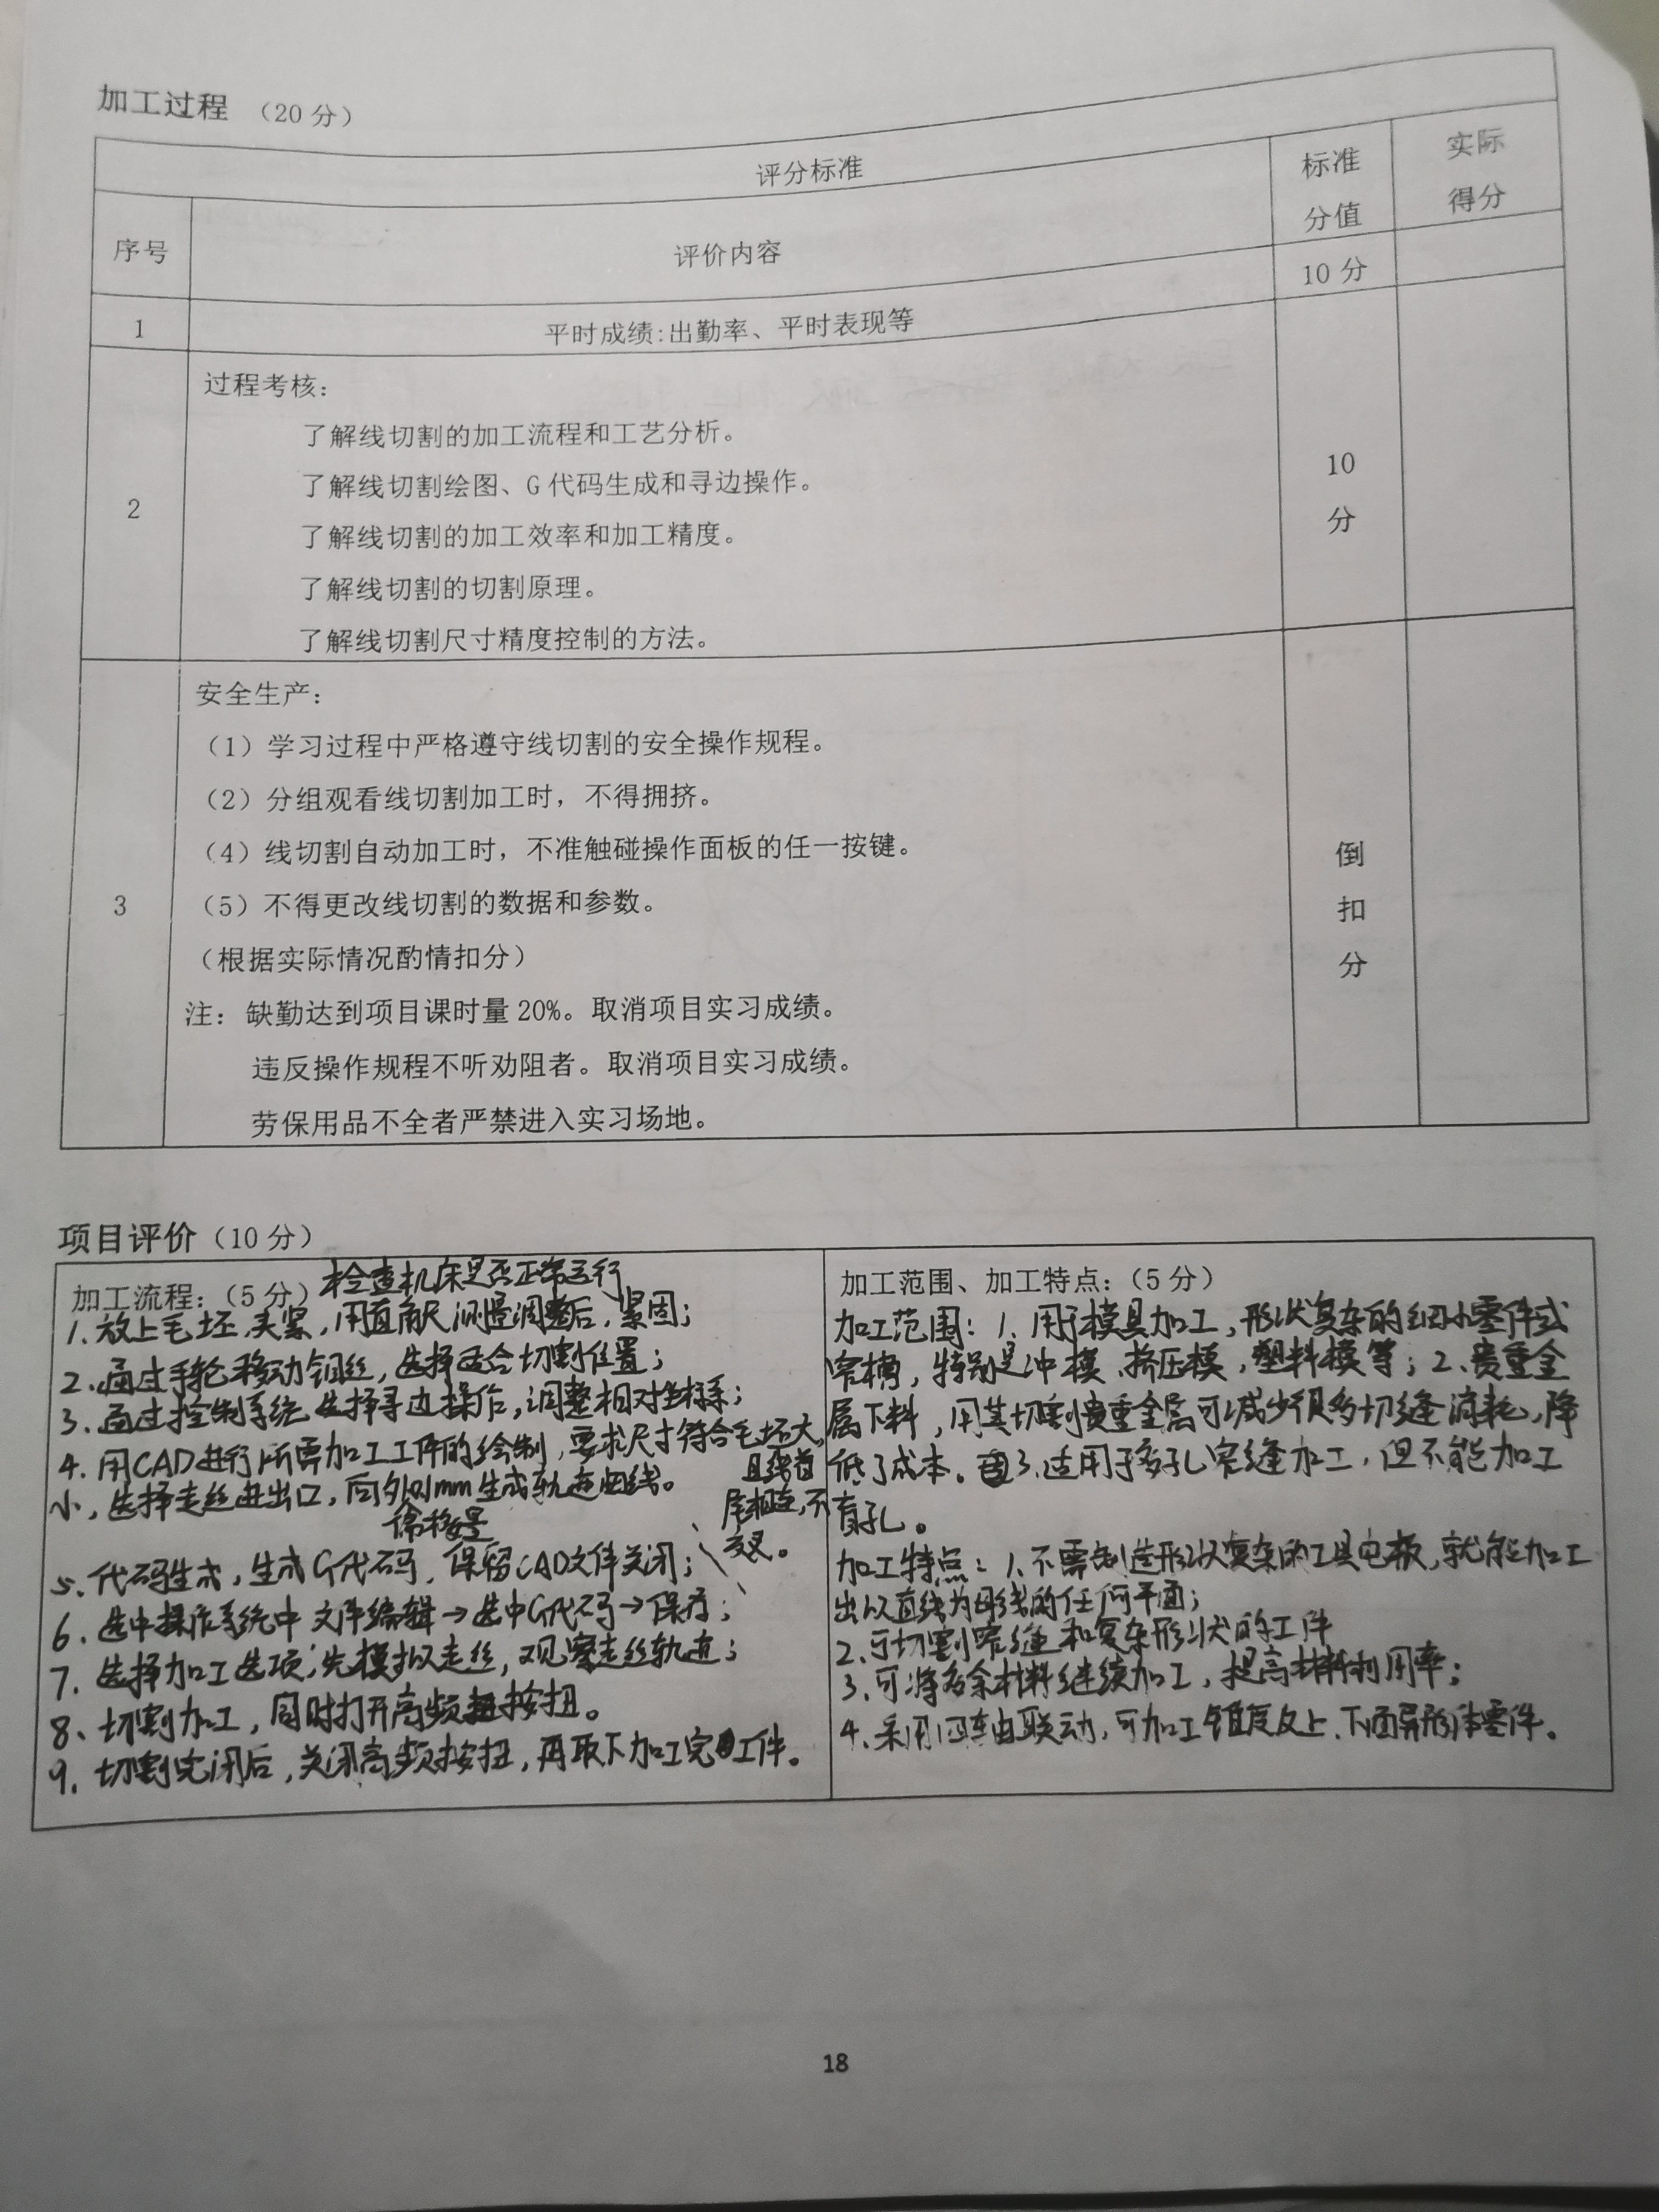 加工过程 （20 分）
评分标准
标准
分值
实际
得分
序号
评价内容
10 分
1
平时成绩:出勤率、平时表现等
2
过程考核：
了解线切割的加工流程和工艺分析。
了解线切割绘图、G 代码生成和寻边操作。
了解线切割的加工效率和加工精度。
了解线切割的切割原理。
了解线切割尺寸精度控制的方法。
10
分
3
安全生产：
（1）学习过程中严格遵守线切割的安全操作规程。
（2）分组观看线切割加工时，不得拥挤。
（4）线切割自动加工时，不准触碰操作面板的任一按键。
（5）不得更改线切割的数据和参数。
（根据实际情况酌情扣分）
注：缺勤达到项目课时量 20%。取消项目实习成绩。
违反操作规程不听劝阻者。取消项目实习成绩。
劳保用品不全者严禁进入实习场地。
倒
扣
分
项目评价（10 分）
加工流程：（5 分）检查机床是否正常运行
1、放上毛坯，夹紧，用直角尺测量调整后，紧固；
2、通过手轮移动钼丝，选择适合切割位置；
3、通过控制系统选择寻边操作，调整相对坐标系；
4、用CAD进行所需加工工件的绘制，要求尺寸符合毛坯大
小，选择走丝进出口，向外0.1mm生成轨迹曲线。
偏移量
且线首
尾相连，不
交叉。
5、代码生成，生成G代码，保留CAD文件关闭；
6、选中操作系统中文件编辑→选中G代码→保存；
7、选择加工选项；先模拟走丝，观察走丝轨迹；
8、切割加工，同时打开高频按扭。
9、切割完闭后，关闭高频按扭，再取下加工完工件。
加工范围、加工特点：（5 分）
加工范围：1、用于模具加工，形状复杂的细小零件或
窄槽，特别是冲模、挤压模，塑料模等；2、贵重金
属下料，用其切割贵重金属可减少很多切缝消耗，降
低了成本。3、适用于多孔窄缝加工，但不能加工
盲孔。
加工特点：1、不需制造形状复杂的工具电极，就能加工
出以直线为母线的任何平面；
2、可切割窄缝和复杂形状的工件
3、可将多余材料继续加工，提高材料利用率；
4、采用四轴联动，可加工锥度及上、下面异形体零件。
18